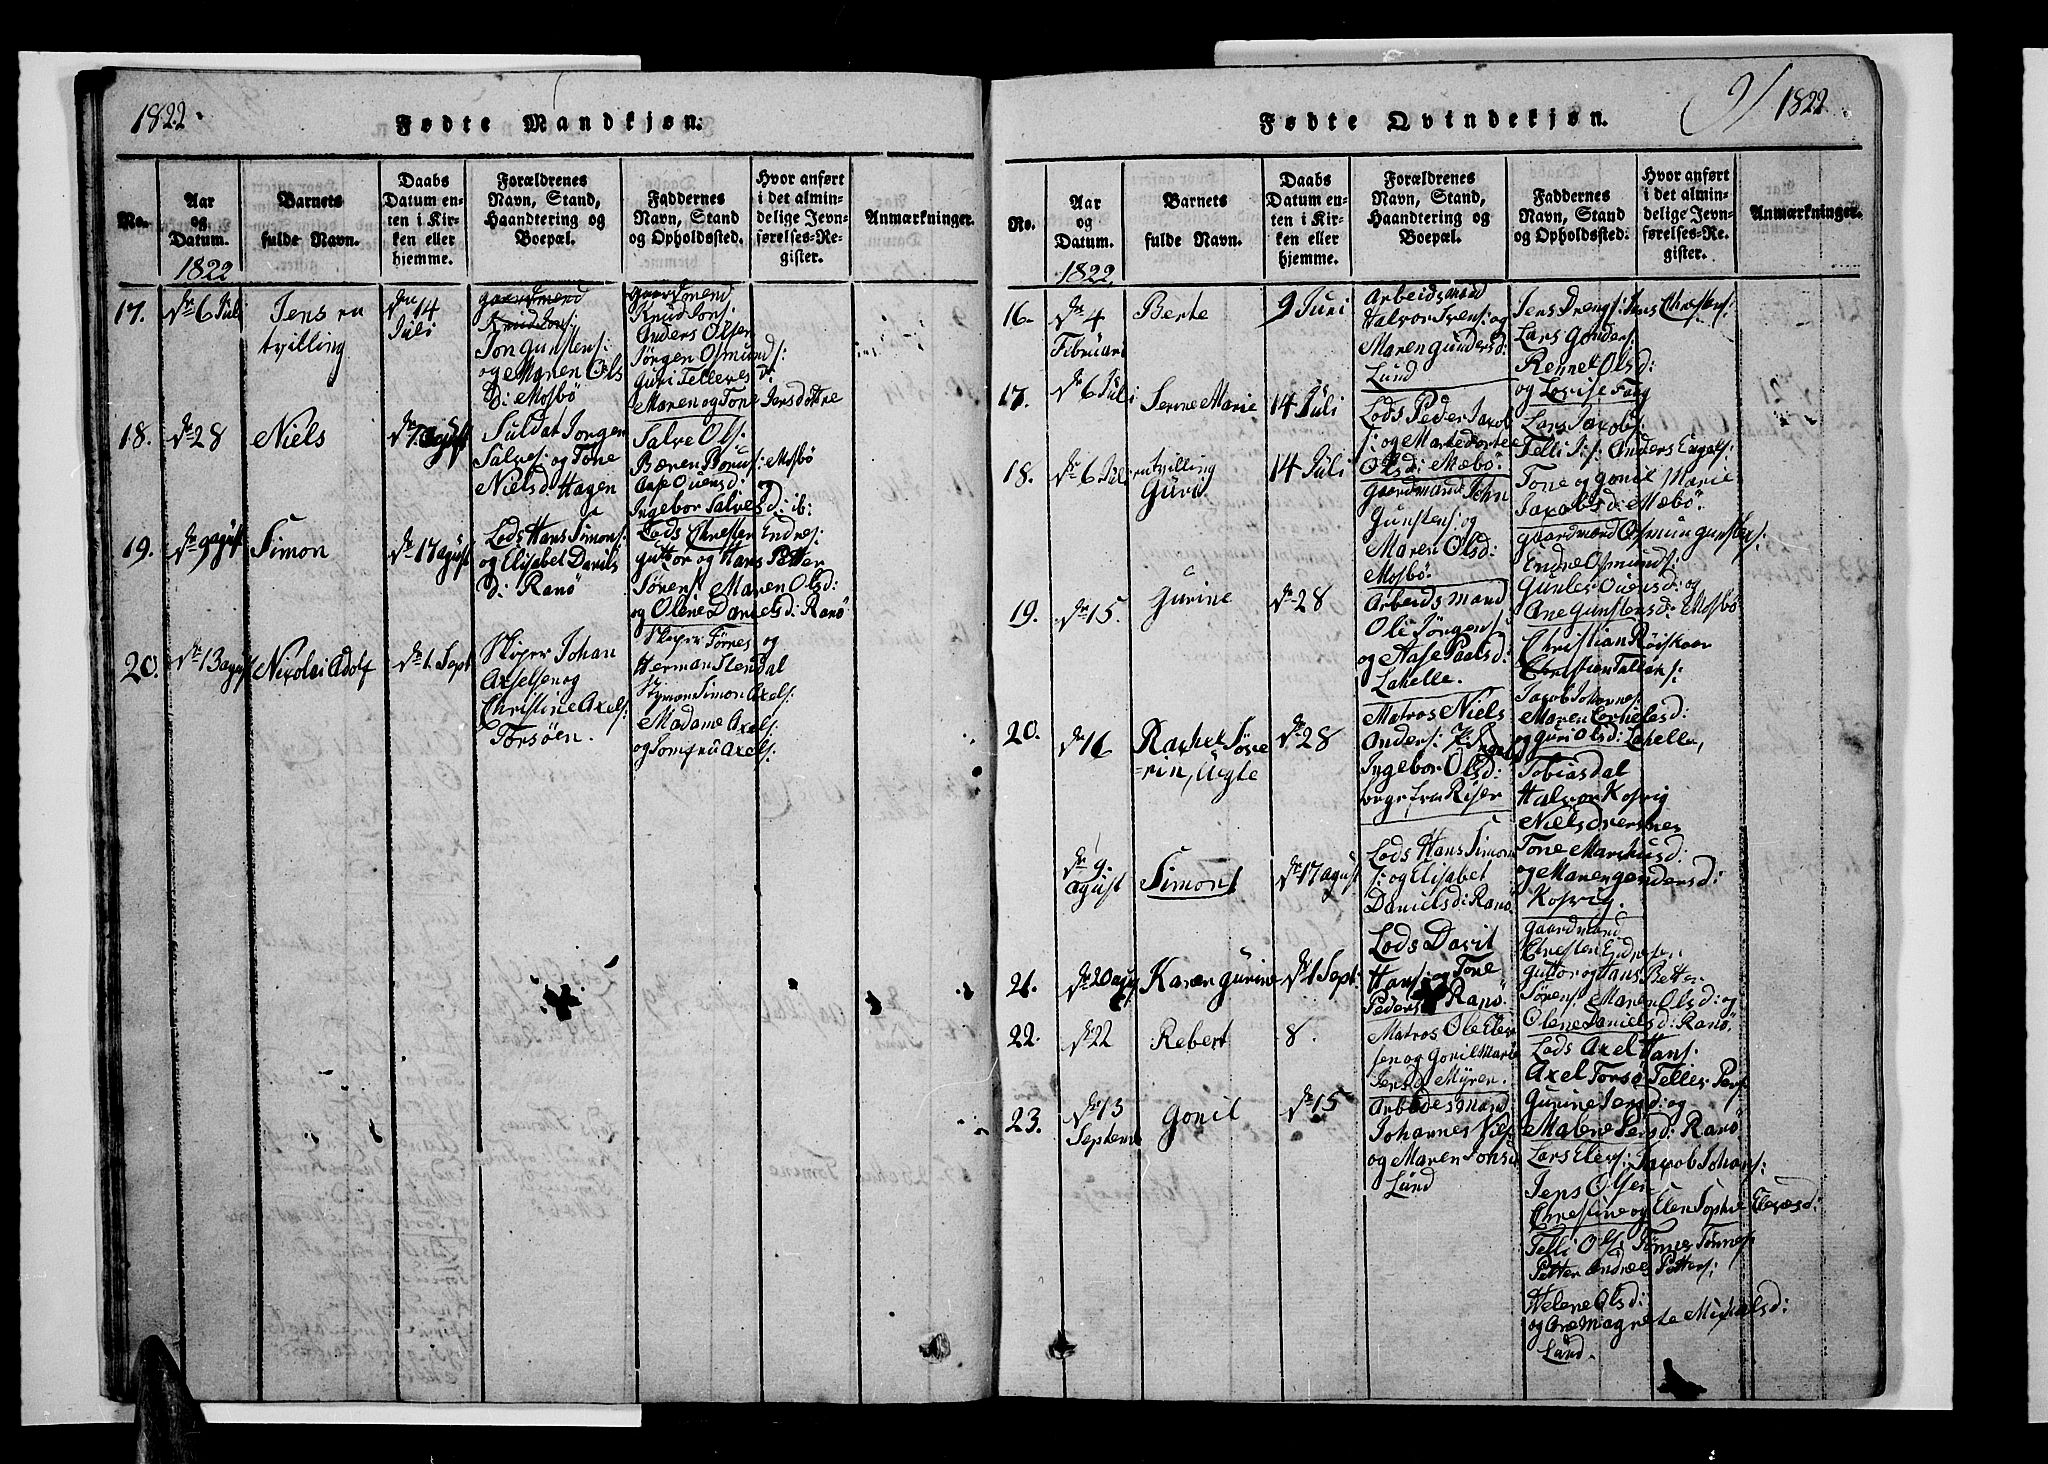 1822.
Fødte Mandkjøn.
No.
Aar
og
Datum.
Barnets
fulde Navn.
Daabs
Datum en-
ten i Kir-
ken eller
hjemme.
Forældrenes
Navn, Stand,
Haandtering og
Boepæl.
Faddernes
Navn, Stand
og Opholdssted.
Hvor anført
i det almin-
delige Jevn-
førelses-Re-
gister.
Anmærkninger.
1822
17.
6 Juli
Jens en
tvilling
14
Juli
gaardmand
Knud Jons:
Jon Gunstens:
og Maren Ols
D: Mosbö
gaardmend
Knud Jons:
Anders Olsen
Jörgen Osmunds:
Guri Telleves D:
Maren og Tone Jensdottre
18.
28
Niels
Suldat Jörgen
Salves: og Tone
Nielsd: Hagen
Salve Ols:
Bæren Borus: Mosbö
Aase Ouensd:
Ingebor Salvesd: ib:
19.
9 agust
Simon
17 agust
Lods Hans Simons:
og Elisabet Davids
D: Ranö
Lods Chresten Endres:
guttor og Hans Petter
Sörens: Maren Olsd:
og Olene Danielsd: Ranö
20.
13 agust
Nicolai Adolf
1. Sept
Skiper Johan
Axelsen og
Christine Axels:
Torsöen.
Skiper Törres og
Herman Stendal
Styrman Simon Axels:
Madame Axels:
og Jomfru Axels:
9/ 1822
Fødte Qvindekjøn.
No.
Aar
og
Datum.
Barnets
fulde Navn.
Daabs
Datum en-
ten i Kir-
ken eller
hjemme.
Forældrenes
Navn, Stand,
Haandtering og
Boepæl.
Faddernes
Navn, Stand
og Opholdssted.
Hvor anført
i det almin-
delige Jevn-
førelses-Re-
gister.
Anmærkninger.
1822
16.
4
Februari
Berte
9 Juni
Arbeidsmand
Halvor Ivens: og
Maren Gundersd:
Lund
Jens Drengs: Jens Chrestens:
Lars Gonders:
Rennet Olsd:
og Lovise Falg
17.
6 Juli
Serine Marie
14 Juli
Lods Peder Jacob
s: og Marte dortea
Olsd: Mæbö
Lars Jacobs:
Telli J:s: Anders Engels:
Tone og Gonil Marie
Jacobsd: Mæbö
18.
6 Juli
en tvilling
Guri
14 Juli
Gaardmand John
Gunstens: og
Maren Olsd:
Mosbö
gaardmand Osmun Gunstens:
Endre Osmunds:
Gunles Ouensd: og
Ane Gunstensd: Mosbö
19.
15.
Gurine
28
Arbeidsmand
Oli Jörgens:
og Aase Paalsd:
Lahelle.
Christian Röiskaar
Christian Tallaks:
Jacob Johannes:
Maren Cornelesd:
og Guri Olsd: Lahelle,
20.
16
Rachel Söve
rin, Uegte
28
Matros Niels
Anders:
Ingebor Olsd:
Tobiasdal
Halvor Kosvig
Tone Marchusd:
og Maren Gondersd:
Kosvig.
9.
agust
Simon
17 agust
Lods Hans Simon
s: og Elisabet
Danielsd: Ranö
gaardmand
Chresten Endresen
Guttor og Hans Petter
Sörens: Maren Olsd: og
Olene Danielsd: Ranö
21.
20 aug
Karen Gurine
1 Sept:
Lods David
Hans: og Tone
Peders Ranö
Lods Axel Hans:
Axel Torsö Telles Pers
Gurine Jensd: og
Malene Persd: Ranö
22.
22
Rebert
8.
Matros Ole Eler
sen og Gonil Marie
Jensd Myren.
Lars Elers: Jacob Johans:
Jens Olsen
Christine og Elen Sophie Elersd:
23.
13
September
Gonil
15
Arbedesmand
Johannes Niels
og Maren Jonsd
Lund
Telli Ols Tönnes Tönnes:
Petter Andreas Petters:
Helene Olsd:
og Ane Magrete Michelsd:
Lund.